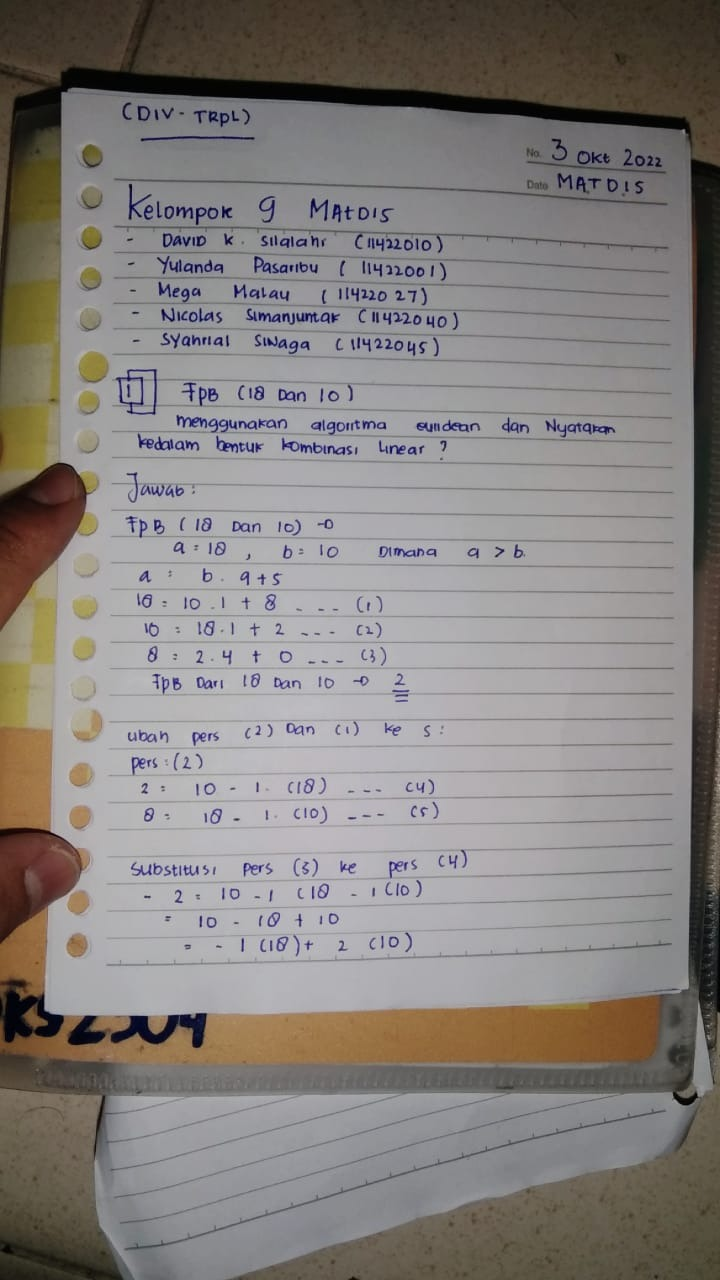 (DIV - TRPL)
No. 3 Okt 2022
Date MATDIS
Kelompok 9 MAtDIS
- DAVID K. Silalahi (11422010)
- Yulanda Pasaribu ( 11422001)
- Mega Malau ( 114220 27)
- Nicolas Simanjuntak (11422040)
- Syahrial Sinaga (11422045)
1 FpB (18 Dan 10)
menggunakan algoritma eulidean dan Nyatakan
kedalam bentuk kombinasi linear ?
Jawab :
FpB ( 18 Dan 10) →
a = 18 , b = 10 Dimana a > b
a = b . q + s
18 = 10 . 1 + 8 - - - (1)
10 = 18 . 1 + 2 - - - (2)
8 = 2 . 4 + 0 - - - (3)
FpB Dari 18 Dan 10 → 2
ubah pers (2) Dan (1) ke s :
pers : (2)
2 = 10 - 1 . (18) - - - (4)
8 = 18 - 1 . (10) - - - (5)
Substitusi pers (5) ke pers (4)
- 2 = 10 - 1 (18 - 1 (10)
= 10 - 18 + 10
= - 1 (18) + 2 (10)
KS2304